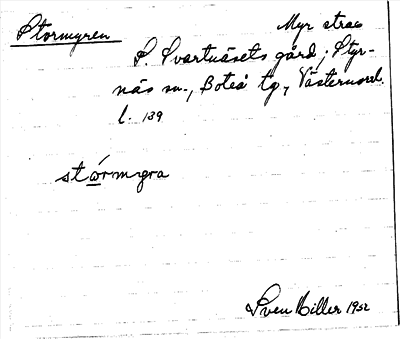 Stormyren Myr strax
S. Svartnäsets gård, Styr-
näs sn., Boteå tg, Västernorrl.
l. 139
stωrmyra
Sven Hiller 1952